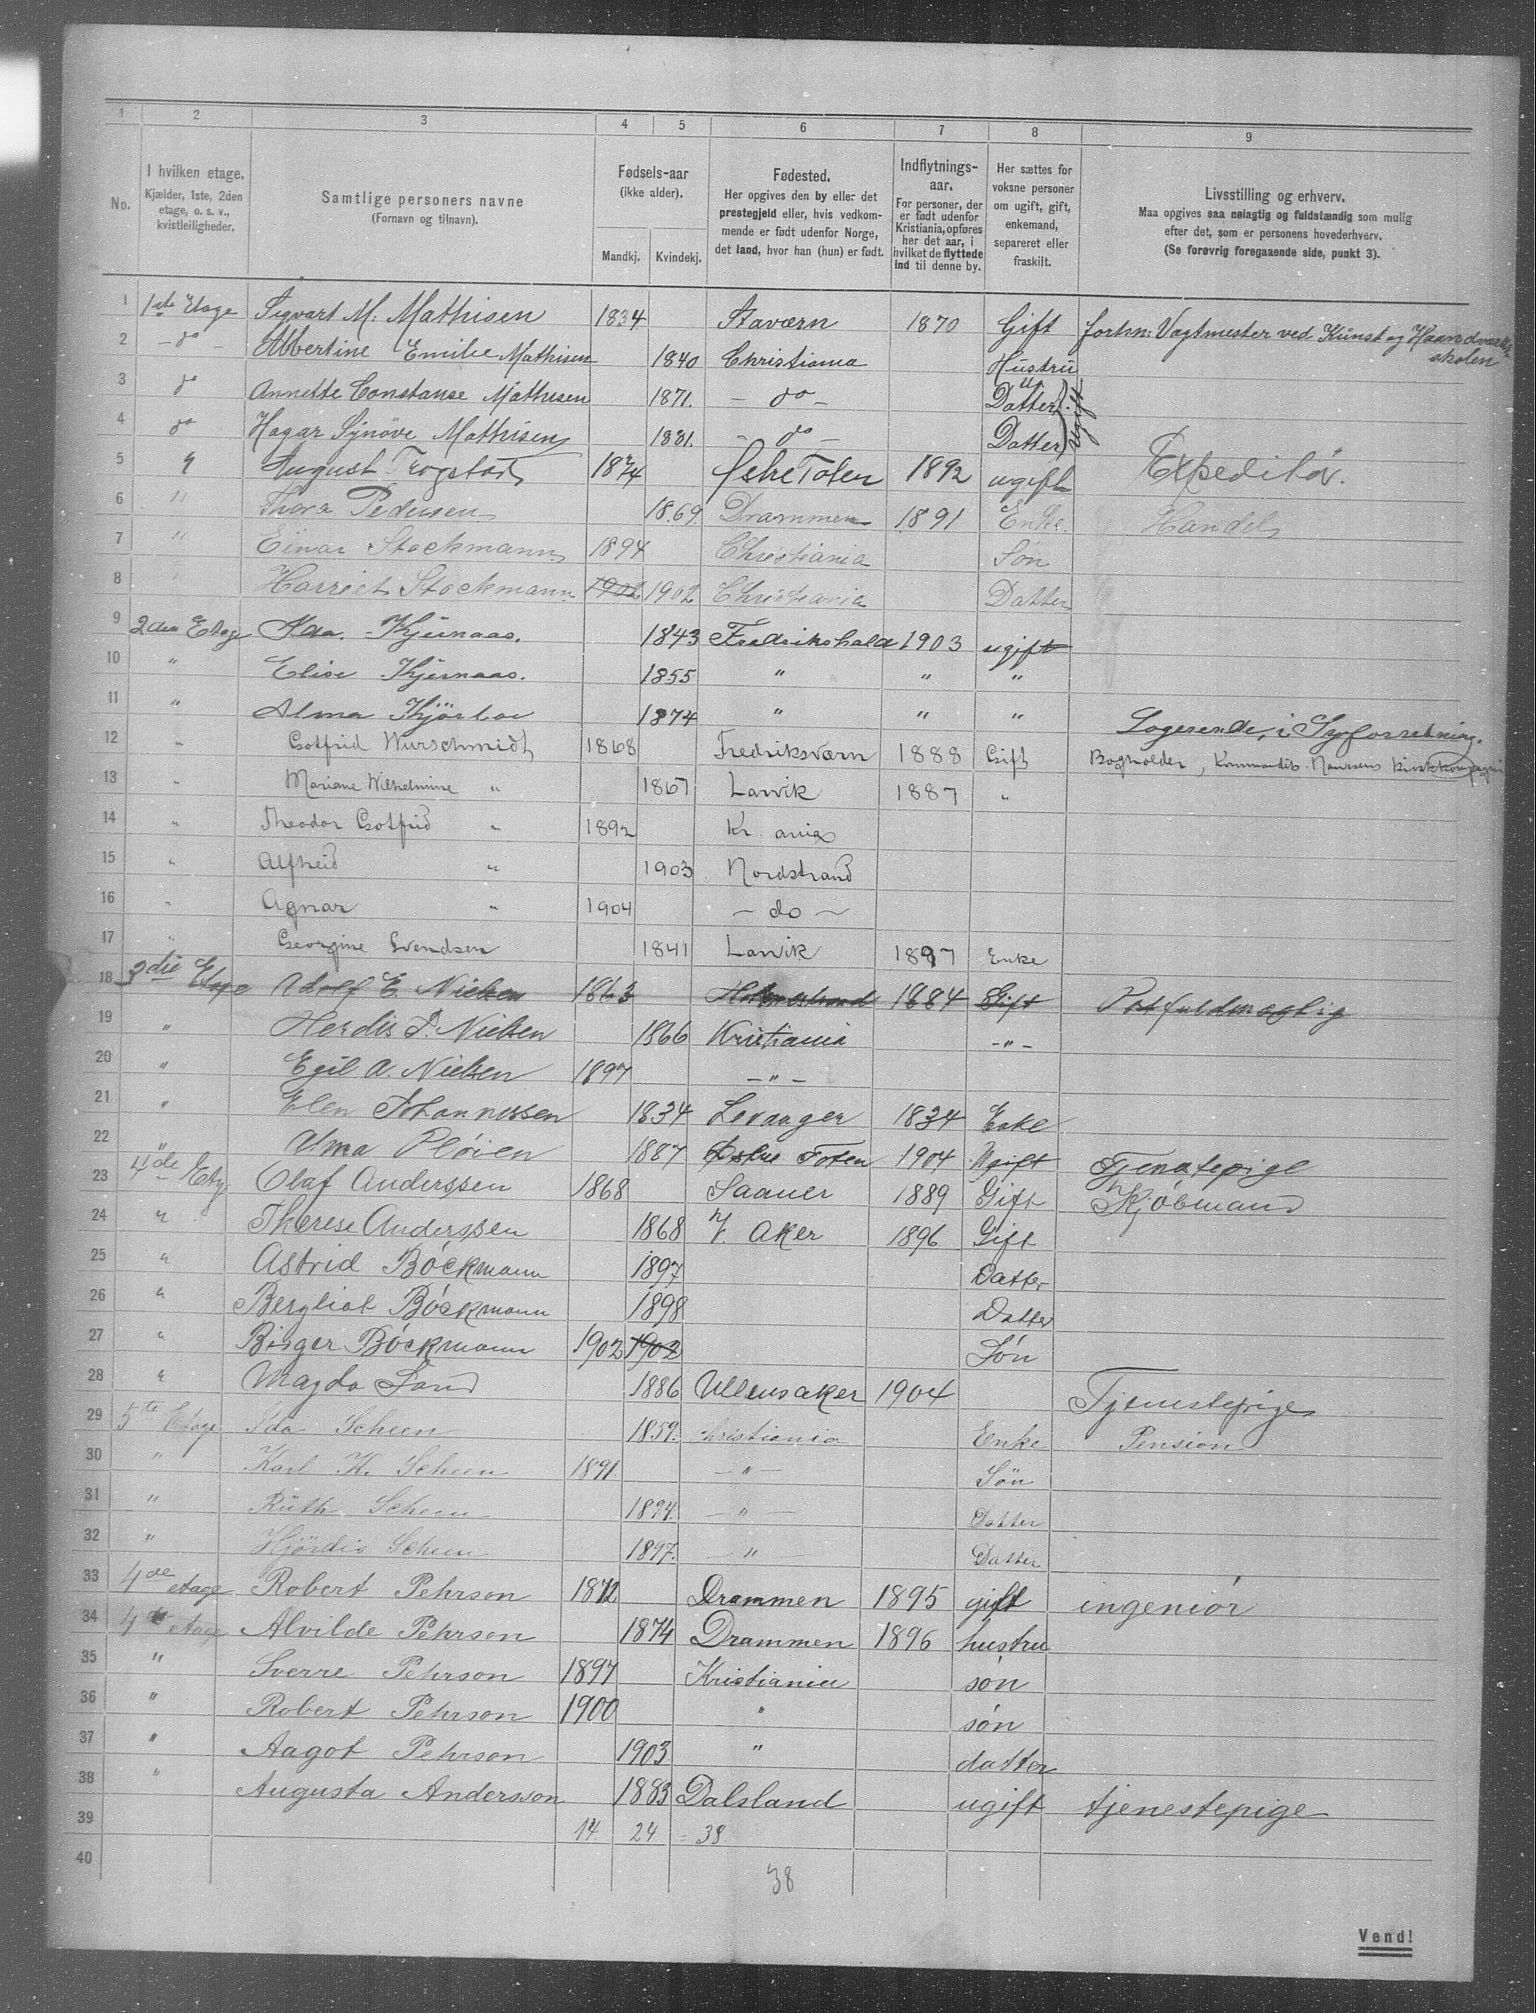 1 2 3 4 5 6 7 8 9
No. | I hvilken etage. Kjælder, 1ste, 2den etage, o. s. v., kvistleiligheder. | Samtlige personers navne (Fornavn og tilnavn). | Fødsels-aar (ikke alder). Mandkj. Kvindekj. | Fødested. Her opgives den by eller det prestegjeld eller, hvis vedkommende er født udenfor Norge, det land, hvor han (hun) er født. | Indflytnings-aar. For personer, der er født udenfor Kristiania, opføres her det aar, i hvilket de flyttede ind til denne by. | Her sættes for voksne personer om ugift, gift, enkemand, separeret eller fraskilt. | Livsstilling og erhverv. Maa opgives saa nøiagtig og fuldstændig som mulig efter det, som er personens hovederhverv. (Se forøvrig foregaaende side, punkt 3).
1 1ste Etage Sigvart M. Mathisen 1834 Staværn 1870 Gift forhn: Vagtmester ved Kunst og Haandværks skolen
2 - do - Albertine Emilie Mathisen 1840 Christiania Hustru
3 do Annette Constanse Mathisen 1871. - do - Datter ugift
4 do Hagar Synöve Mathisen 1881. - do - Datter
5 " August Trogstad 1874 Østre Toten 1892 ugift Expeditör.
6 " Thora Pedersen 1869. Drammen 1891 Enke. Handel
7 " Einar Stockmann 1894 Christiania Søn
8 Harriet Stockmann 1902 1902 Christiania Datter
9 2den Etage Ida. Kjernaas. 1843 Fredrikshald 1903 ugift
10 " Elise Kjernaas. 1855 " " "
11 " Alma 1874 " " " Logerende, i Syforretning.
12 " Gotfrid Wurschmidt 1868 Fredriksværn 1888 Gift Bogholder,
13 " Mariane Wilhelmine " 1867 Larvik 1887 "
14 " Theodor Gotfrid " 1892 Kr. ania
15 " Alfheid " 1903 Nordstrand
16 " Agnar " 1904 - do -
17 " Georgine Svendsen 1841 Larvik 1897 Enke
18 3die Etage Adolf E. Nielsen 1863 Holmestrand 1884 Gift Postfuldmægtig
19 " Herdis P. Nielsen 1866 Kristiania - " -
20 " Egil A. Nielsen 1897 - " -
21 " Elen Johannessen 1834 Levanger 1834 Enke
22 " Alma Pløien 1887 Østre Toten 1904 Ugift Tjenstepige
23 4de Etg Olaf Anderssen 1868 Saaner 1889 Gift Kjöbmand
24 " Therese Anderssen 1868 V. Aker 1896 Gift
25 " Astrid Böckmann 1897 Datter
26 " Bergliot Böckmann 1898 Datter
27 " Birger Böckmann 1902 1902 Søn
28 " Magda Sand 1886 Ullensaker 1904 Tjenestepige
29 5te Etage Ida Scheen 1859. Christiania Enke Pension
30 " Karl K. Scheen 1891 - " - Sön
31 " Ruth Scheen 1894. - " - Datter
32 " Hjördis Scheen 1897. - " - Datter
33 4de etage Robert Pehrson 1872 Drammen 1895 gift ingeniør
34 4de etage Alvilde Pehrson 1874 Drammen 1896 hustru
35 " Sverre Pehrson 1897 Kristiania søn
36 " Robert Pehrson 1900 " søn
37 " Aagot Pehrson 1903 " datter
38 " Augusta Andersson 1883 Dalsland ugift tjenestepige
39 14 24 = 38
40 38
Vend!